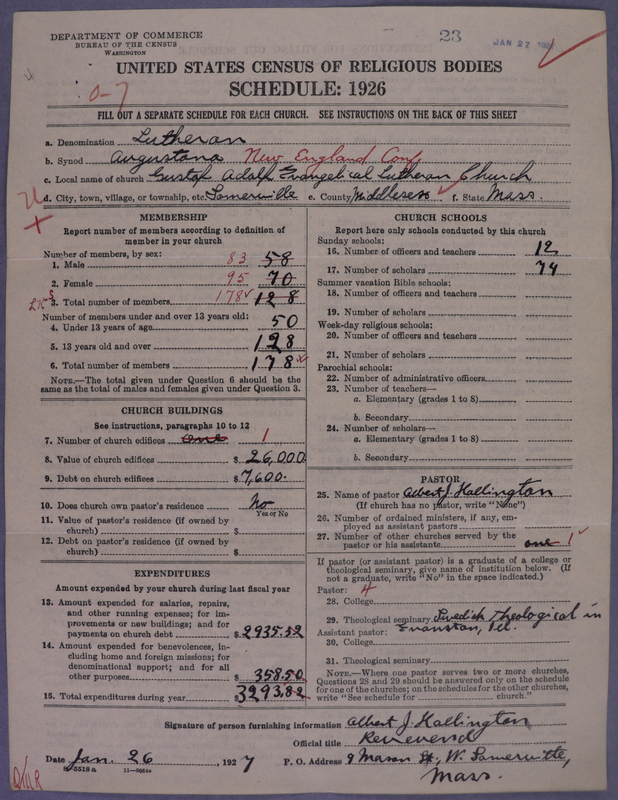 DEPARTMENT OF COMMERCE
BUREAU OF THE CENSUS
WASHINGTON
23
JAN 27 192
UNITED STATES CENSUS OF RELIGIOUS BODIES
SCHEDULE: 1926
0-7
FILL OUT A SEPARATE SCHEDULE FOR EACH CHURCH. SEE INSTRUCTIONS ON THE BACK OF THIS SHEET
a. Denomination Lutheran
b. Synod Augustana New England Conf.
c. Local name of church Gustaf Adolf Evangelical Lutheran Church
d. City, town, village, or township, etc. Somerville e. County Middlesex f. State Mass.
MEMBERSHIP
Report number of members according to definition of
member in your church
Number of members, by sex:
1. Male 83 58
2. Female 95 70
3. Total number of members 178 128
Number of members under and over 13 years old:
4. Under 13 years of age 50
5. 13 years old and over 128
6. Total number of members 178
NOTE.—The total given under Question 6 should be
the same as the total of males and females given under Question 3.
CHURCH BUILDINGS
See instructions, paragraphs 10 to 12
7. Number of church edifices one 1
8. Value of church edifices $ 26,000
9. Debt on church edifices $ 7,600.
10. Does church own pastor's residence No
Yes or No
11. Value of pastor's residence (if owned by
church) $
12. Debt on pastor's residence (if owned by
church) $
EXPENDITURES
Amount expended by your church during last fiscal year
13. Amount expended for salaries, repairs,
and other running expenses; for im-
provements or new buildings; and for
payments on church debt $ 2935.52
14. Amount expended for benevolences, in-
cluding home and foreign missions; for
denominational support; and for all
other purposes $ 358.50
15. Total expenditures during year $ 3293.82
CHURCH SCHOOLS
Report here only schools conducted by this church
Sunday schools:
16. Number of officers and teachers 12
17. Number of scholars 74
Summer vacation Bible schools:
18. Number of officers and teachers
19. Number of scholars
Week-day religious schools:
20. Number of officers and teachers
21. Number of scholars
Parochial schools:
22. Number of administrative officers
23. Number of teachers—
a. Elementary (grades 1 to 8)
b. Secondary
24. Number of scholars—
a. Elementary (grades 1 to 8)
b. Secondary
PASTOR
25. Name of pastor Albert J. Hallington
(If church has no pastor, write "None")
26. Number of ordained ministers, if any, em-
ployed as assistant pastors
27. Number of other churches served by the
pastor or his assistants one 1
If pastor (or assistant pastor) is a graduate of a college or
theological seminary, give name of institution below. (If
not a graduate, write "No" in the space indicated.)
Pastor: 4
28. College
29. Theological seminary Swedish Theological in
Evanston, Ill.
Assistant pastor:
30. College
31. Theological seminary
NOTE.—Where one pastor serves two or more churches,
Questions 28 and 29 should be answered only on the schedule
for one of the churches; on the schedules for the other churches,
write "See schedule for church."
Signature of person furnishing information Albert J. Hallington
Official title Reverend
Date Jan. 26, 1927 P. O. Address 9 Mason St., W. Somerville,
Mass.
8-5518a